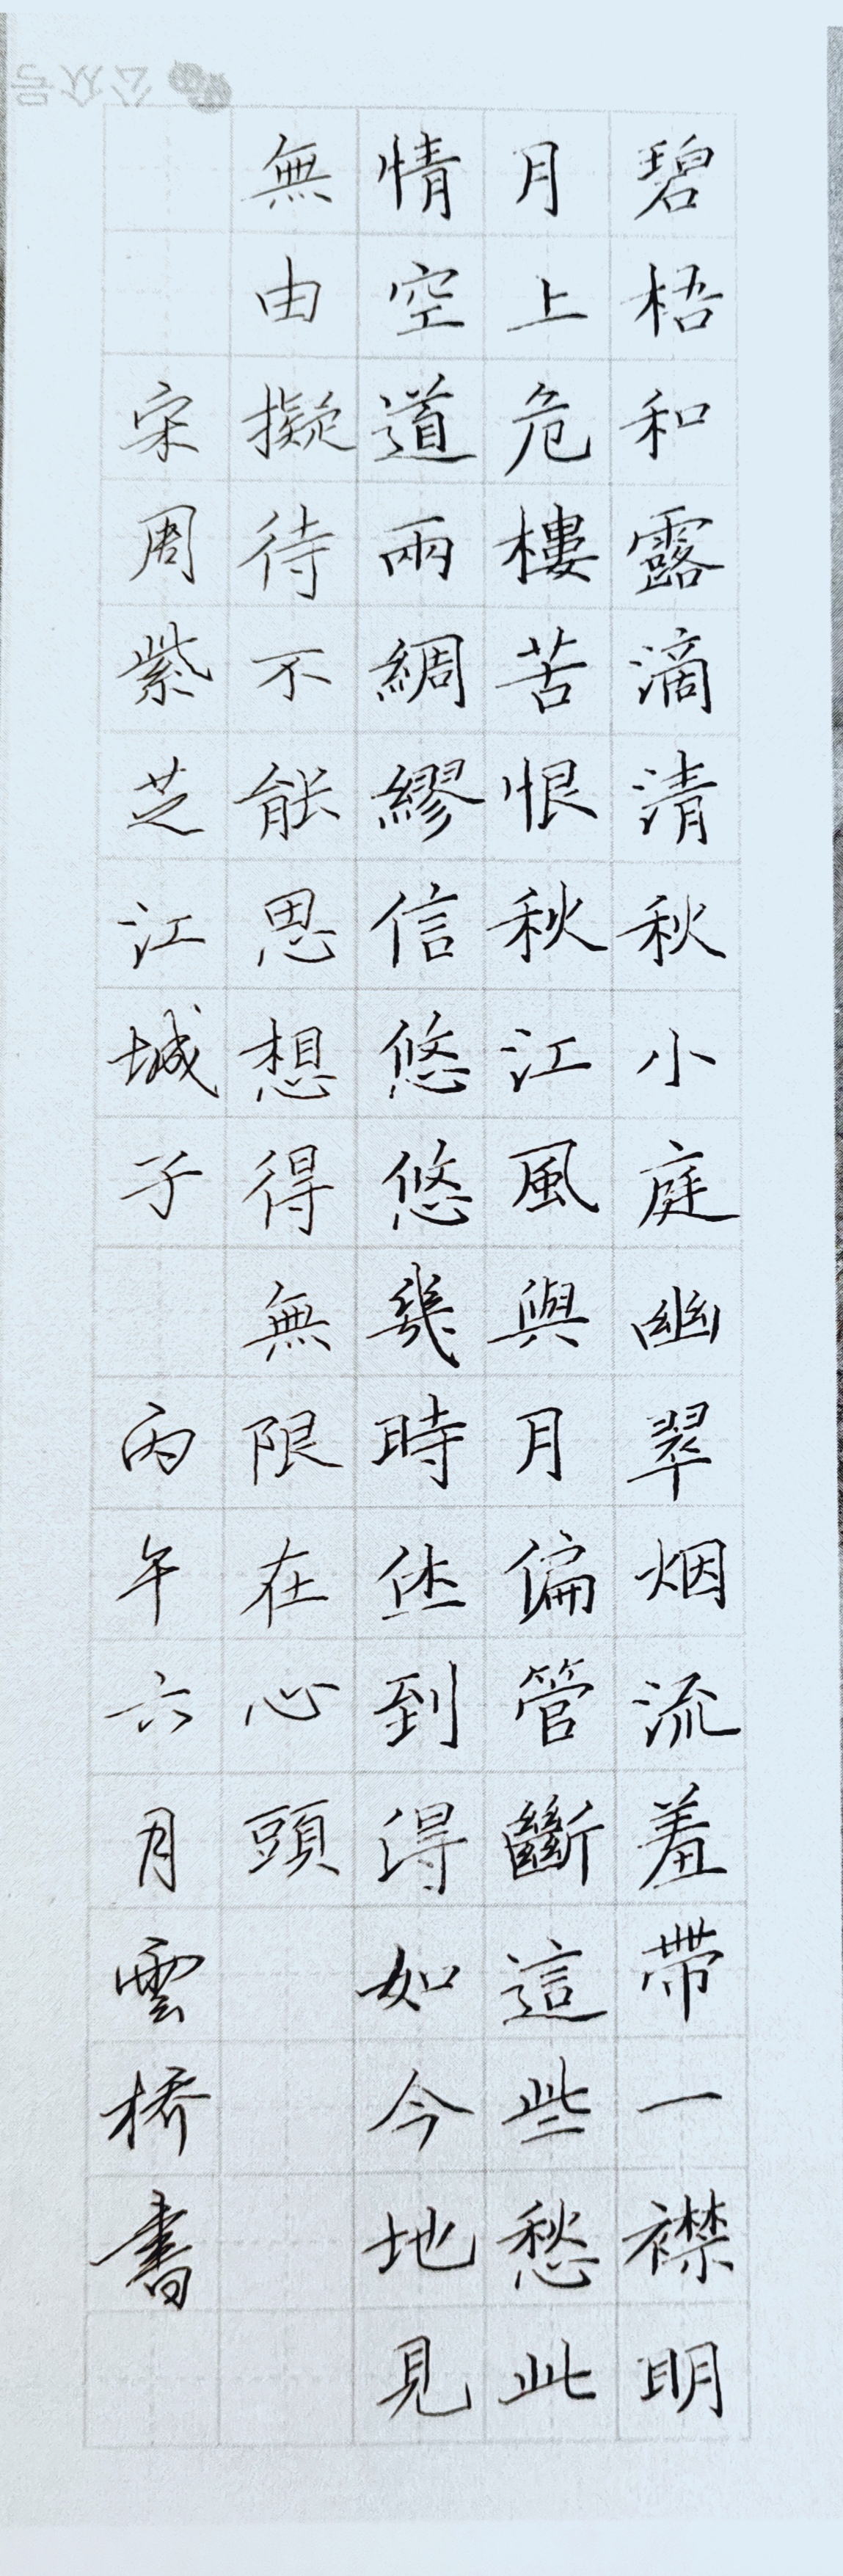 碧梧和露滴清秋小庭幽翠烟流羞帶一襟明
月上危樓苦恨秋江風與月偏管斷這些愁此
情空道兩綢繆信悠悠幾時休到得如今地見
無由擬待不能思想得無限在心頭
宋周紫芝江城子 丙午六月雲橋書
公众号